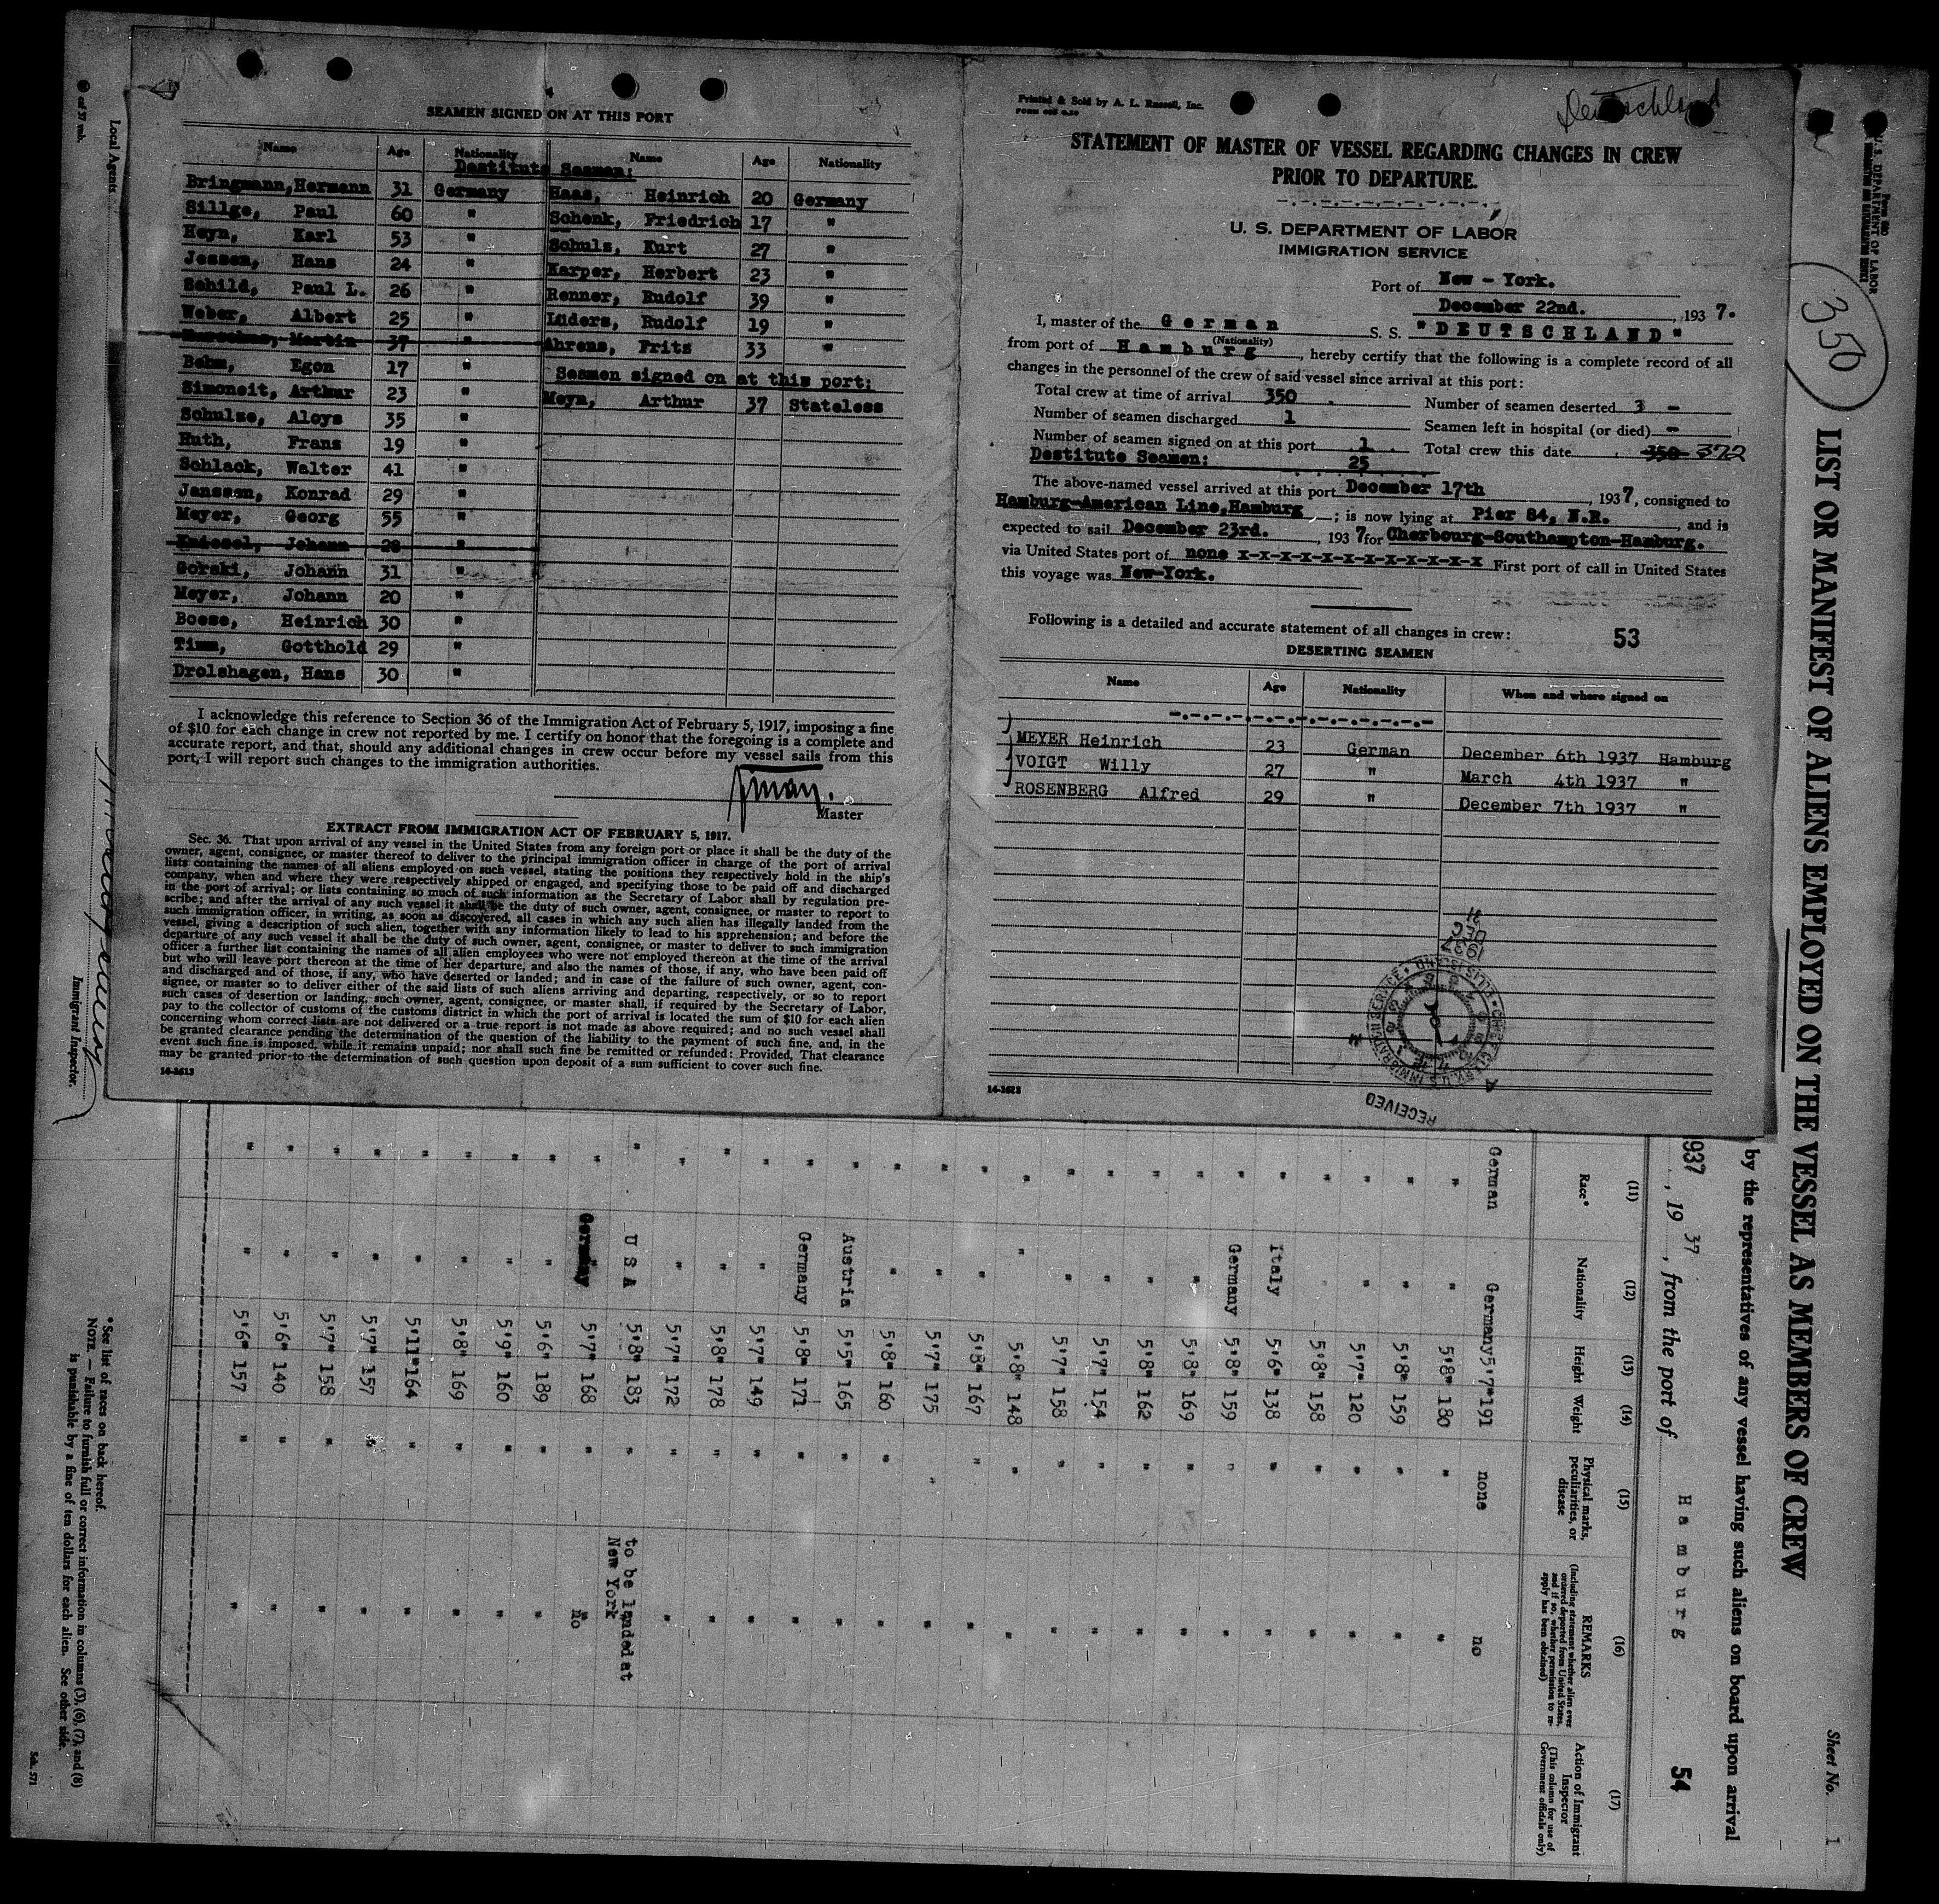 SEAMEN SIGNED ON AT THIS PORT
Name Age Nationality Name Age Nationality
Destitute Seamen:
Bringmann, Hermann 31 Germany Haas, Heinrich 20 Germany
Sillge, Paul 60 " Schenk, Friedrich 17 "
Heyn, Karl 53 " Schulz, Kurt 27 "
Jessen, Hans 24 " Karper, Herbert 23 "
Schild, Paul L. 26 " Renner, Rudolf 39 "
Weber, Albert 25 " Lüders, Rudolf 19 "
Martin 37 " Ahrens, Fritz 33 "
Behm, Egon 17 " Seamen signed on at this port:
Simoneit, Arthur 23 " Meyn, Arthur 37 Stateless
Schulze, Aloys 35 "
Huth, Franz 19 "
Schlack, Walter 41 "
Janssen, Konrad 29 "
Meyer, Georg 55 "
Kniesel, Johann 28 "
Gorski, Johann 31 "
Meyer, Johann 20 "
Boese, Heinrich 30 "
Timm, Gotthold 29 "
Drolshagen, Hans 30 "
I acknowledge this reference to Section 36 of the Immigration Act of February 5, 1917, imposing a fine
of $10 for each change in crew not reported by me. I certify on honor that the foregoing is a complete and
accurate report, and that, should any additional changes in crew occur before my vessel sails from this
port, I will report such changes to the immigration authorities.
Master
EXTRACT FROM IMMIGRATION ACT OF FEBRUARY 5, 1917.
Sec. 36. That upon arrival of any vessel in the United States from any foreign port or place it shall be the duty of the
owner, agent, consignee, or master thereof to deliver to the principal immigration officer in charge of the port of arrival
lists containing the names of all aliens employed on such vessel, stating the positions they respectively hold in the ship's
company, when and where they were respectively shipped or engaged, and specifying those to be paid off and discharged
in the port of arrival; or lists containing so much of such information as the Secretary of Labor shall by regulation pre-
scribe; and after the arrival of any such vessel it shall be the duty of such owner, agent, consignee, or master to report to
such immigration officer, in writing, as soon as discovered, all cases in which any such alien has illegally landed from the
vessel, giving a description of such alien, together with any information likely to lead to his apprehension; and before the
departure of any such vessel it shall be the duty of such owner, agent, consignee, or master to deliver to such immigration
officer a further list containing the names of all alien employees who were not employed thereon at the time of the arrival
but who will leave port thereon at the time of her departure, and also the names of those, if any, who have been paid off
and discharged and of those, if any, who have deserted or landed; and in case of the failure of such owner, agent, con-
signee, or master so to deliver either of the said lists of such aliens arriving and departing, respectively, or so to report
such cases of desertion or landing, such owner, agent, consignee, or master shall, if required by the Secretary of Labor,
pay to the collector of customs of the customs district in which the port of arrival is located the sum of $10 for each alien
concerning whom correct lists are not delivered or a true report is not made as above required; and no such vessel shall
be granted clearance pending the determination of the question of the liability to the payment of such fine, and, in the
event such fine is imposed, while it remains unpaid; nor shall such fine be remitted or refunded: Provided, That clearance
may be granted prior to the determination of such question upon deposit of a sum sufficient to cover such fine.
14-1613
Deutschland
Printed & Sold by A. L. Russell, Inc.
STATEMENT OF MASTER OF VESSEL REGARDING CHANGES IN CREW
PRIOR TO DEPARTURE.
U. S. DEPARTMENT OF LABOR
IMMIGRATION SERVICE
Port of New - York.
December 22nd. , 193 7.
I, master of the German S. S. "DEUTSCHLAND"
(Nationality)
from port of Hamburg, hereby certify that the following is a complete record of all
changes in the personnel of the crew of said vessel since arrival at this port:
Total crew at time of arrival 350 . Number of seamen deserted 3 -
Number of seamen discharged 1 Seamen left in hospital (or died) -
Number of seamen signed on at this port 1 . Total crew this date 350 372
Destitute Seamen: 25
The above-named vessel arrived at this port December 17th , 1937, consigned to
Hamburg-American Line, Hamburg ; is now lying at Pier 84, N.R. , and is
expected to sail December 23rd. , 193 7 for Cherbourg-Southampton-Hamburg.
via United States port of none x-x-x-x-x-x-x-x-x-x-x-x First port of call in United States
this voyage was New-York.
Following is a detailed and accurate statement of all changes in crew: 53
DESERTING SEAMEN
Name Age Nationality When and where signed on
MEYER Heinrich 23 German December 6th 1937 Hamburg
VOIGT Willy 27 " March 4th 1937 "
ROSENBERG Alfred 29 " December 7th 1937 "
1937
DEC
RECEIVED
14-1613
350
U. S. DEPARTMENT OF LABOR
LIST OR MANIFEST OF ALIENS EMPLOYED ON THE VESSEL AS MEMBERS OF CREW
Sheet No. 1
by the representatives of any vessel having such aliens on board upon arrival
937 , 19 37 , from the port of Hamburg 54
(11) (12) (13) (14) (15) (16) (17)
Race* Nationality Height Weight Physical marks, peculiarities, or disease REMARKS (Including statement whether alien ever ordered deported from United States, and if so, whether permission to re-apply has been obtained) Action of Immigrant Inspector (This column for use of Government officials only)
German Germany 5'7" 191 none no
" " 5'8" 180 " "
" " 5'8" 159 " "
" " 5'7" 120 " "
" " 5'8" 158 " "
" Italy 5'6" 138 " "
" Germany 5'8" 159 " "
" " 5'8" 169 " "
" " 5'8" 162 " "
" " 5'7" 154 " "
" " 5'7" 158 " "
" " 5'8" 148 " "
" " 5'8" 167 " "
" " 5'7" 175 " "
" " 5'8" 160 " "
" Austria 5'5" 165 " "
" Germany 5'8" 171 " "
" " 5'7" 149 " "
" " 5'8" 178 " "
" " 5'7" 172 " "
" U S A 5'8" 183 " to be landed at New York
" Germany 5'7" 168 " no
" " 5'6" 189 " "
" " 5'9" 160 " "
" " 5'8" 169 " "
" " 5'11" 164 " "
" " 5'7" 157 " "
" " 5'7" 158 " "
" " 5'6" 140 " "
" " 5'6" 157 " "
* See list of races on back hereof.
NOTE. — Failure to furnish full or correct information in columns (3), (6), (7), and (8)
is punishable by a fine of ten dollars for each alien. See other side.
Sch. 571
Local Agents
Immigrant Inspector.